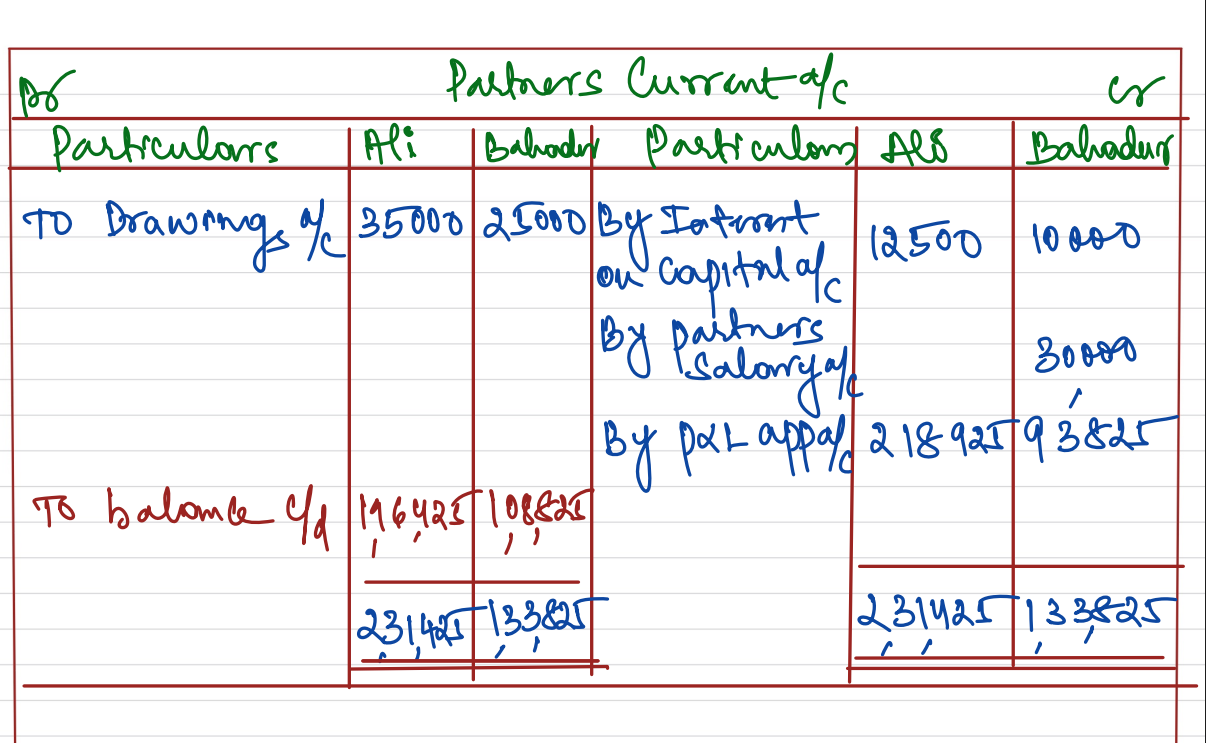 Dr Partners Current a/c Cr
Particulars Ali Bahadur Particulars Ali Bahadur
To Drawings a/c 35000 25000 By Interest 12500 10000
on capital a/c
By partners
Salary a/c 30000
By P&L app a/c 218925 93825
To balance c/d 196425 108825
231425 133825 231425 133825